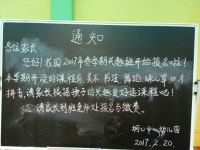 通知
各位家长
您好!我园2017年春学期兴趣班开始报名啦!
本学期开设的课程有美术 书法 舞蹈 珠心算 口才
拼音,请家长根据孩子的兴趣爱好选课程吧!
请家长到班主任处报名与缴费。
中心幼儿园
2017.2.20